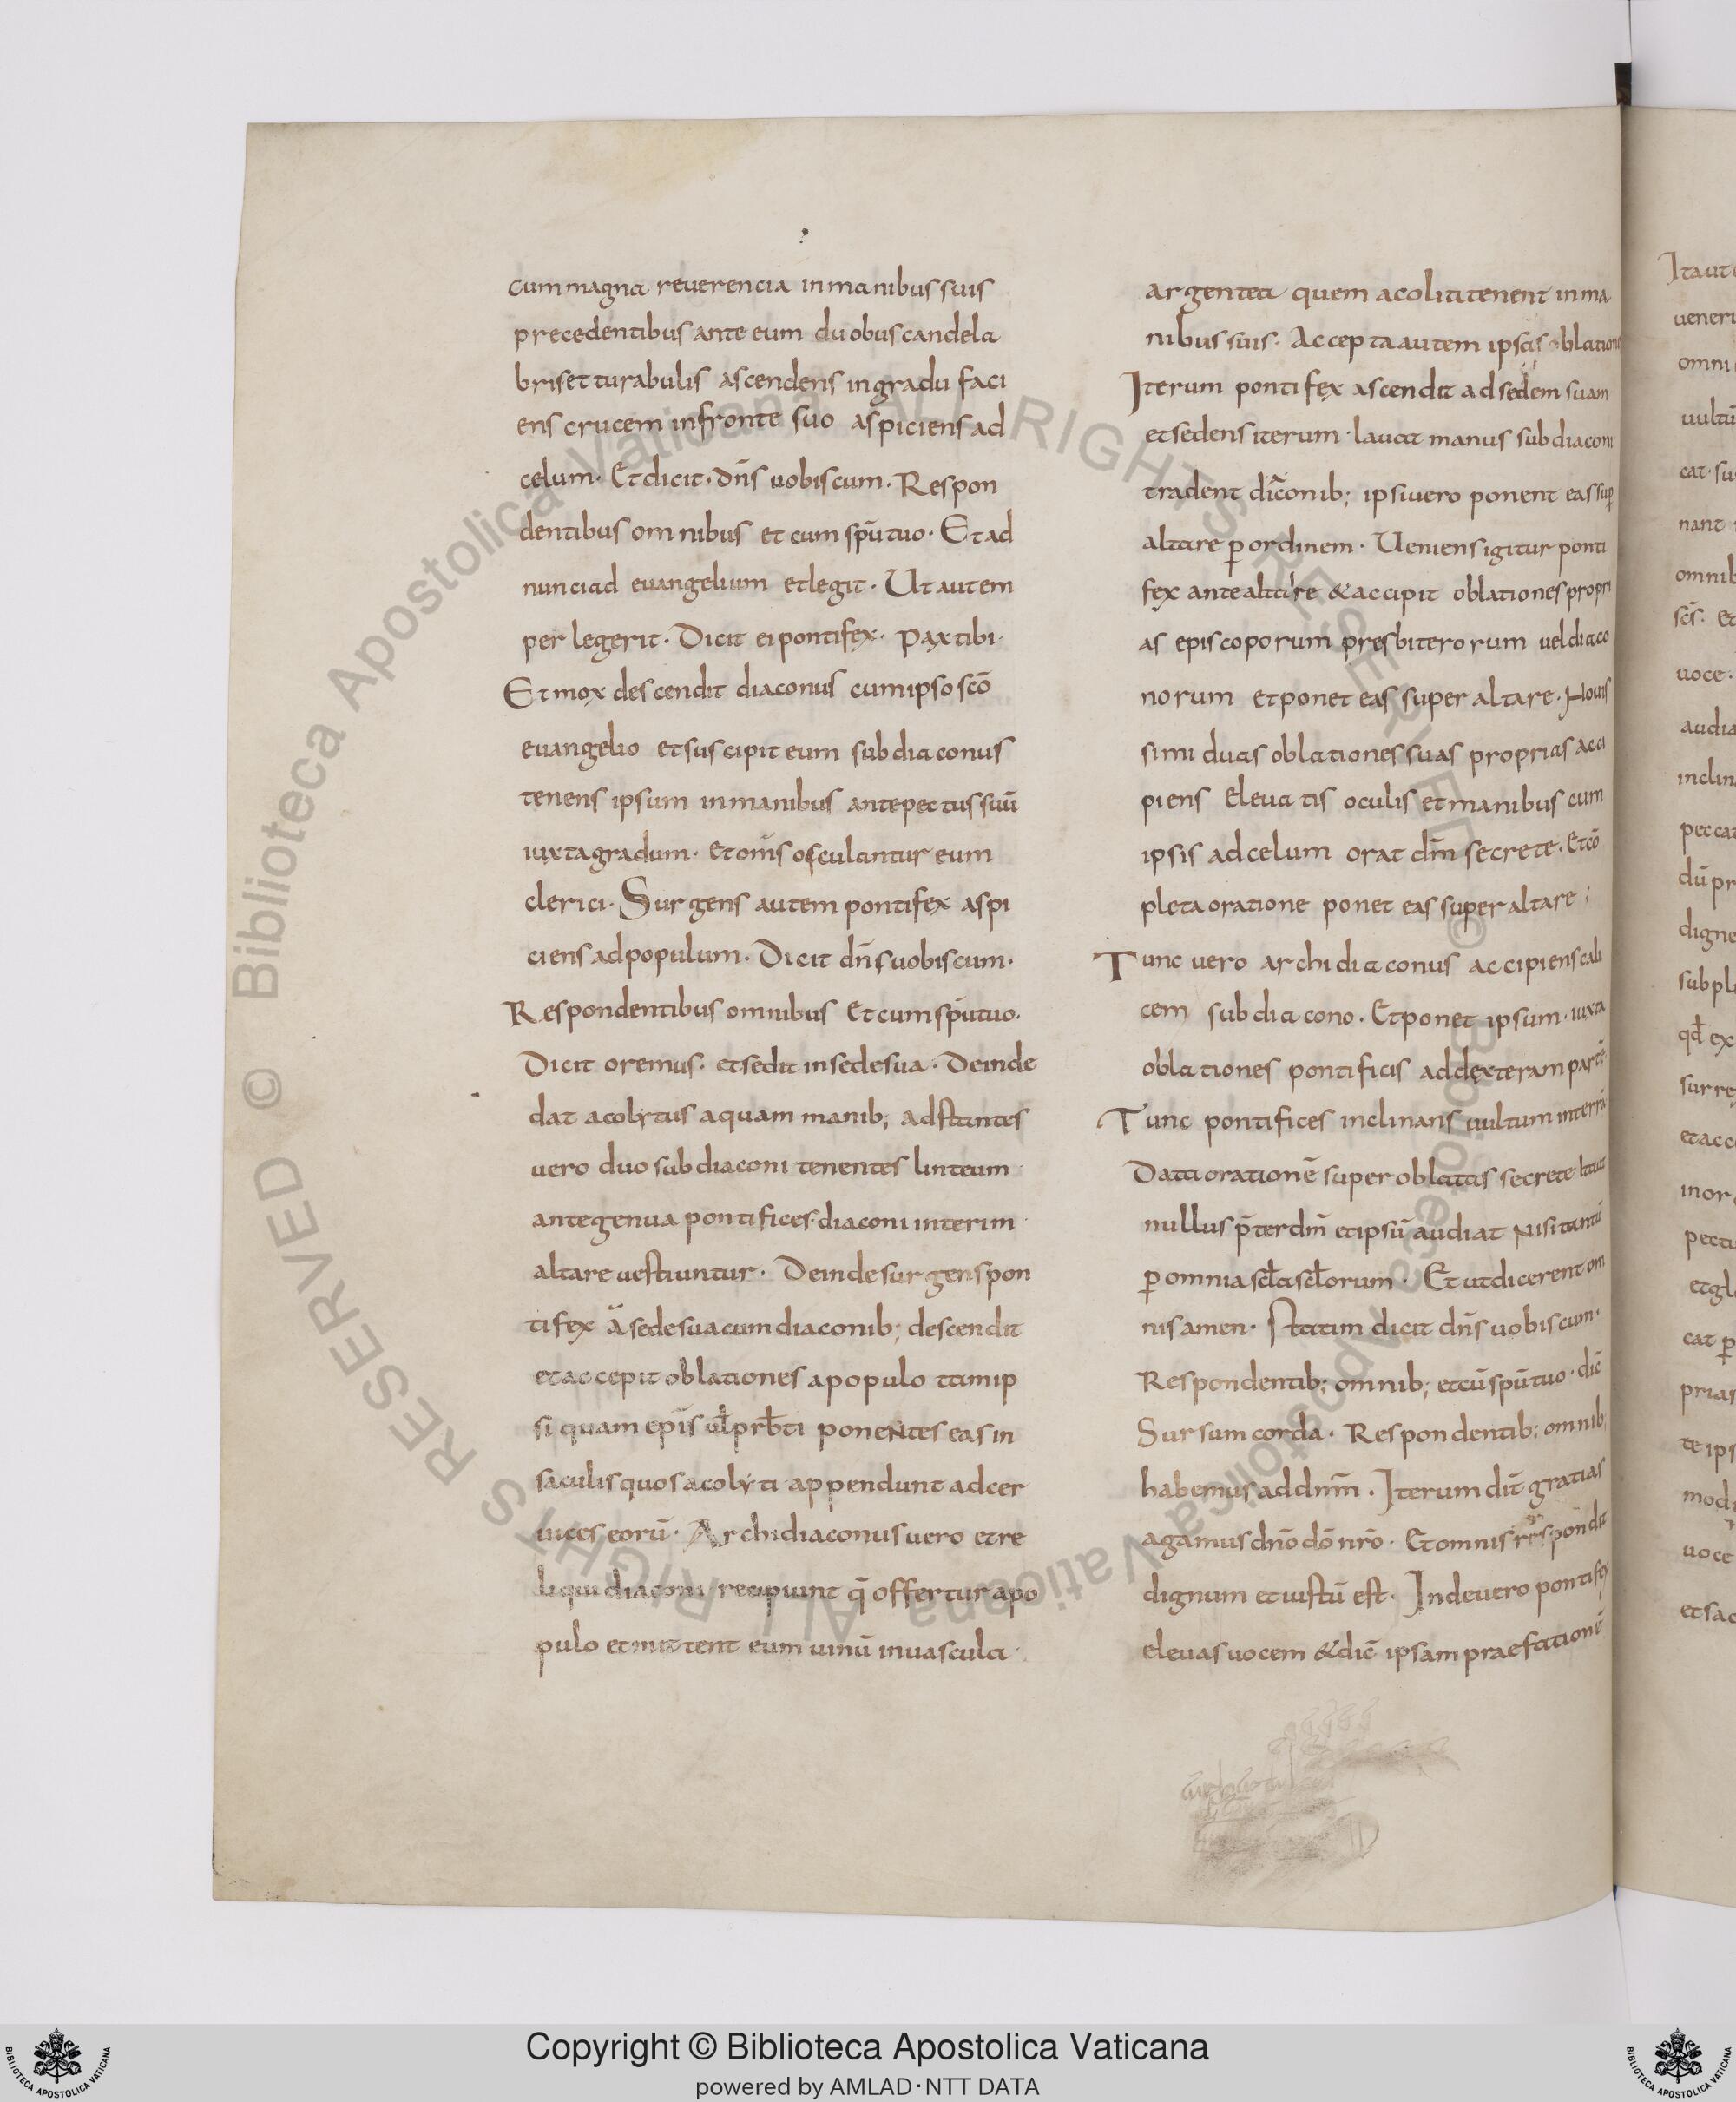 cum magna reuerencia in manibus suis
precedentibus ante eum duobus candela
bris et turabulis ascendens in gradu faci
ens crucem in fronte suo aspiciens ad
celum. Et dicit. dn̄s uobiscum. Respon
dentibus omnibus et cum spū tuo. Et ad
nunciad euangelium et legit. Ut autem
perlegerit. Dicit ei pontifex. Pax tibi.
Et mox descendit diaconus cum ipso scō
euangelio et suscipit eum subdiaconus
tenens ipsum in manibus ante pectus suū
iuxta gradum. et om̄s osculantur eum
clerici. Surgens autem pontifex aspi
ciens ad populum. Dicit dn̄s uobiscum.
Respondentibus omnibus Et cum spū tuo.
Dicit oremus. et sedit in sede sua. Deinde
dat acolytus aquam manib; adstantes
uero duo subdiaconi tenentes linteum
ante genua pontifices. diaconi interim
altare uestiuntur. Deinde surgens pon
tifex a sede sua cum diaconib; descendit
et accepit oblationes a populo tam ip
si quam epīs ul̄ prb̄ti ponentes eas in
saculis quos acolyti appendunt ad cer
uices eorū. Archidiaconus uero et re
liqui diaconi recipiunt q̄ offertur a po
pulo et mittent eum uinū in uascula
argentea quem acoliti tenent in ma
nibus suis. Accepta autem ipsas oblationes
Iterum pontifex ascendit ad sedem suam
et sedens iterum. lauat manus subdiaconi
tradent diāconib; ipsi uero ponent eas sup̄
altare p̄ ordinem. Ueniens igitur ponti
fex ante altare & accipit oblationes propri
as episcoporum presbiterorum uel diaco
norum et ponet eas super altare. Nouis
simi duas oblationes suas proprias acci
piens eleuatis oculis et manibus cum
ipsis ad celum orat dm̄ secrete. Et cō
pleta oratione ponet eas super altare;
Tunc uero archidiaconus accipiens cali
cem subdiacono. Et ponet ipsum. iuxta
oblationes pontificis ad dexteram partē.
Tunc pontifices inclinans uultum in terrā
Data orationē super oblatas secrete Itaut
nullus p̄ter dm̄ et ipsū audiat Nisi tantū
p̄ omnia scl̄a scl̄orum. Et ut dicerent om
nis amen. Statim dicit dn̄s uobiscum.
Respondentib; omnib; et cū spū tuo. dic̄
Sursum corda. Respondentib; omnib;
habemus ad dnm̄. Iterum dit̄ gratias
agamus dnō dō nrō. Et omnis respondit
dignum et iustū est. Inde uero pontifex
eleuas uocem & dic̄ ipsam praefationē
Copyright © Biblioteca Apostolica Vaticana
powered by AMLAD·NTT DATA